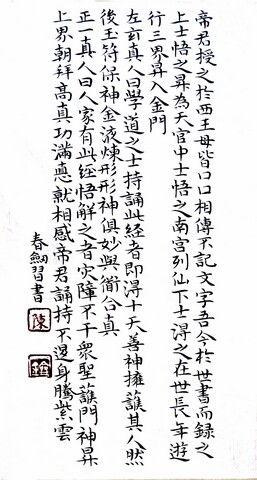 帝君授之於西王母皆口口相傳不記文字吾今於世書而録之
上士悟之昇為天官中士悟之南宮列仙下士得之在世長年遊
行三界昇入金門
左玄真人曰學道之士持誦此經者即得十天善神擁護其人然
後玉符保神金液煉形形神俱妙與道合真
正一真人曰人家有此經悟解之者灾障不干衆聖護門神昇
上界朝拜高真功滿德就相感帝君誦持不退身騰紫雲
春 習書
陳